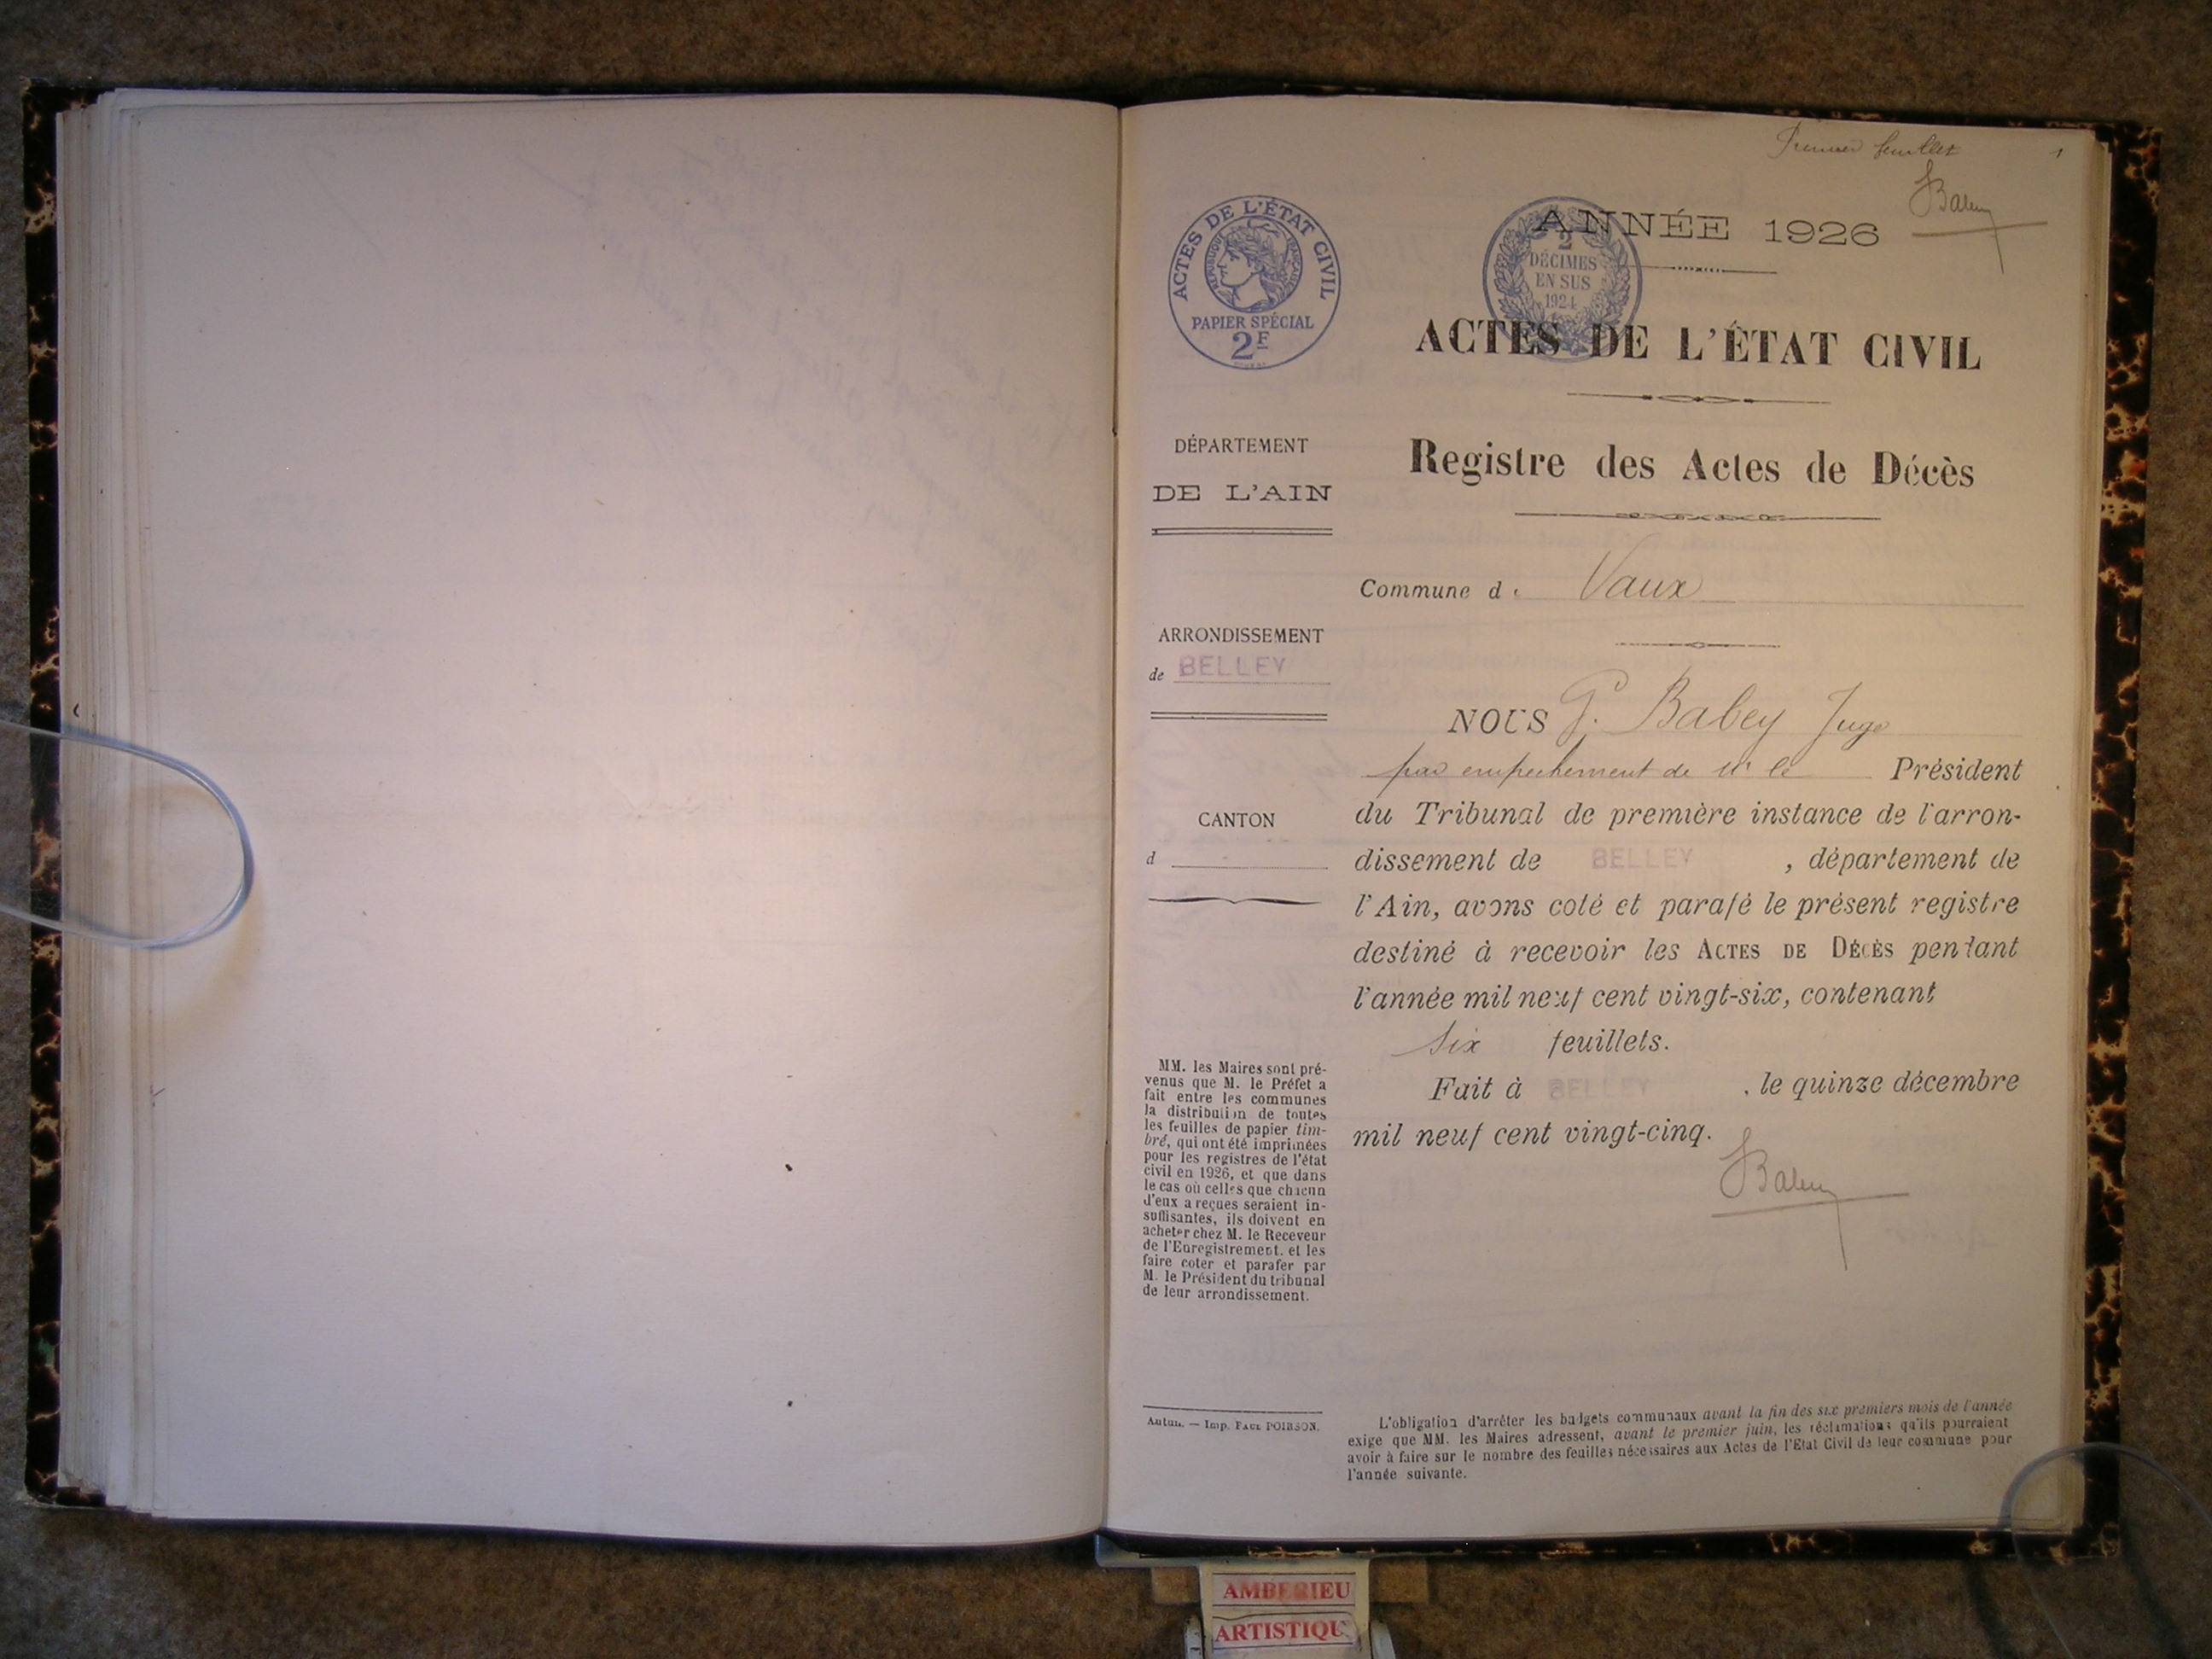 Premier feuillet 1
Babey
ACTES DE L'ÉTAT CIVIL
RÉPUBLIQUE FRANÇAISE
PAPIER SPÉCIAL
2F
2
DÉCIMES
EN SUS
1924
ANNÉE 1926
ACTES DE L'ÉTAT CIVIL
Registre des Actes de Décès
DÉPARTEMENT
DE L'AIN
ARRONDISSEMENT
de BELLEY
CANTON
d
MM. les Maires sont pré-
venus que M. le Préfet a
fait entre les communes
la distribution de toutes
les feuilles de papier tim-
bré, qui ont été imprimées
pour les registres de l'état
civil en 1926, et que dans
le cas où celles que chacun
d'eux a reçues seraient in-
suffisantes, ils doivent en
acheter chez M. le Receveur
de l'Enregistrement. et les
faire coter et parafer par
M. le Président du tribunal
de leur arrondissement.
Autun. — Imp. PAUL POIRSON.
Commune de Vaux
NOUS G. Babey Juge
par empechement de Mr le Président
du Tribunal de première instance de l'arron-
dissement de BELLEY, département de
l'Ain, avons coté et parafé le présent registre
destiné à recevoir les ACTES DE DÉCÈS pendant
l'année mil neuf cent vingt-six, contenant
six feuillets.
Fait à BELLEY, le quinze décembre
mil neuf cent vingt-cinq.
Babey
L'obligation d'arrêter les budgets communaux avant la fin des six premiers mois de l'année
exige que MM. les Maires adressent, avant le premier juin, les réclamations qu'ils pourraient
avoir à faire sur le nombre des feuilles nécessaires aux Actes de l'Etat Civil de leur commune pour
l'année suivante.
AMBERIEU
ARTISTIQU